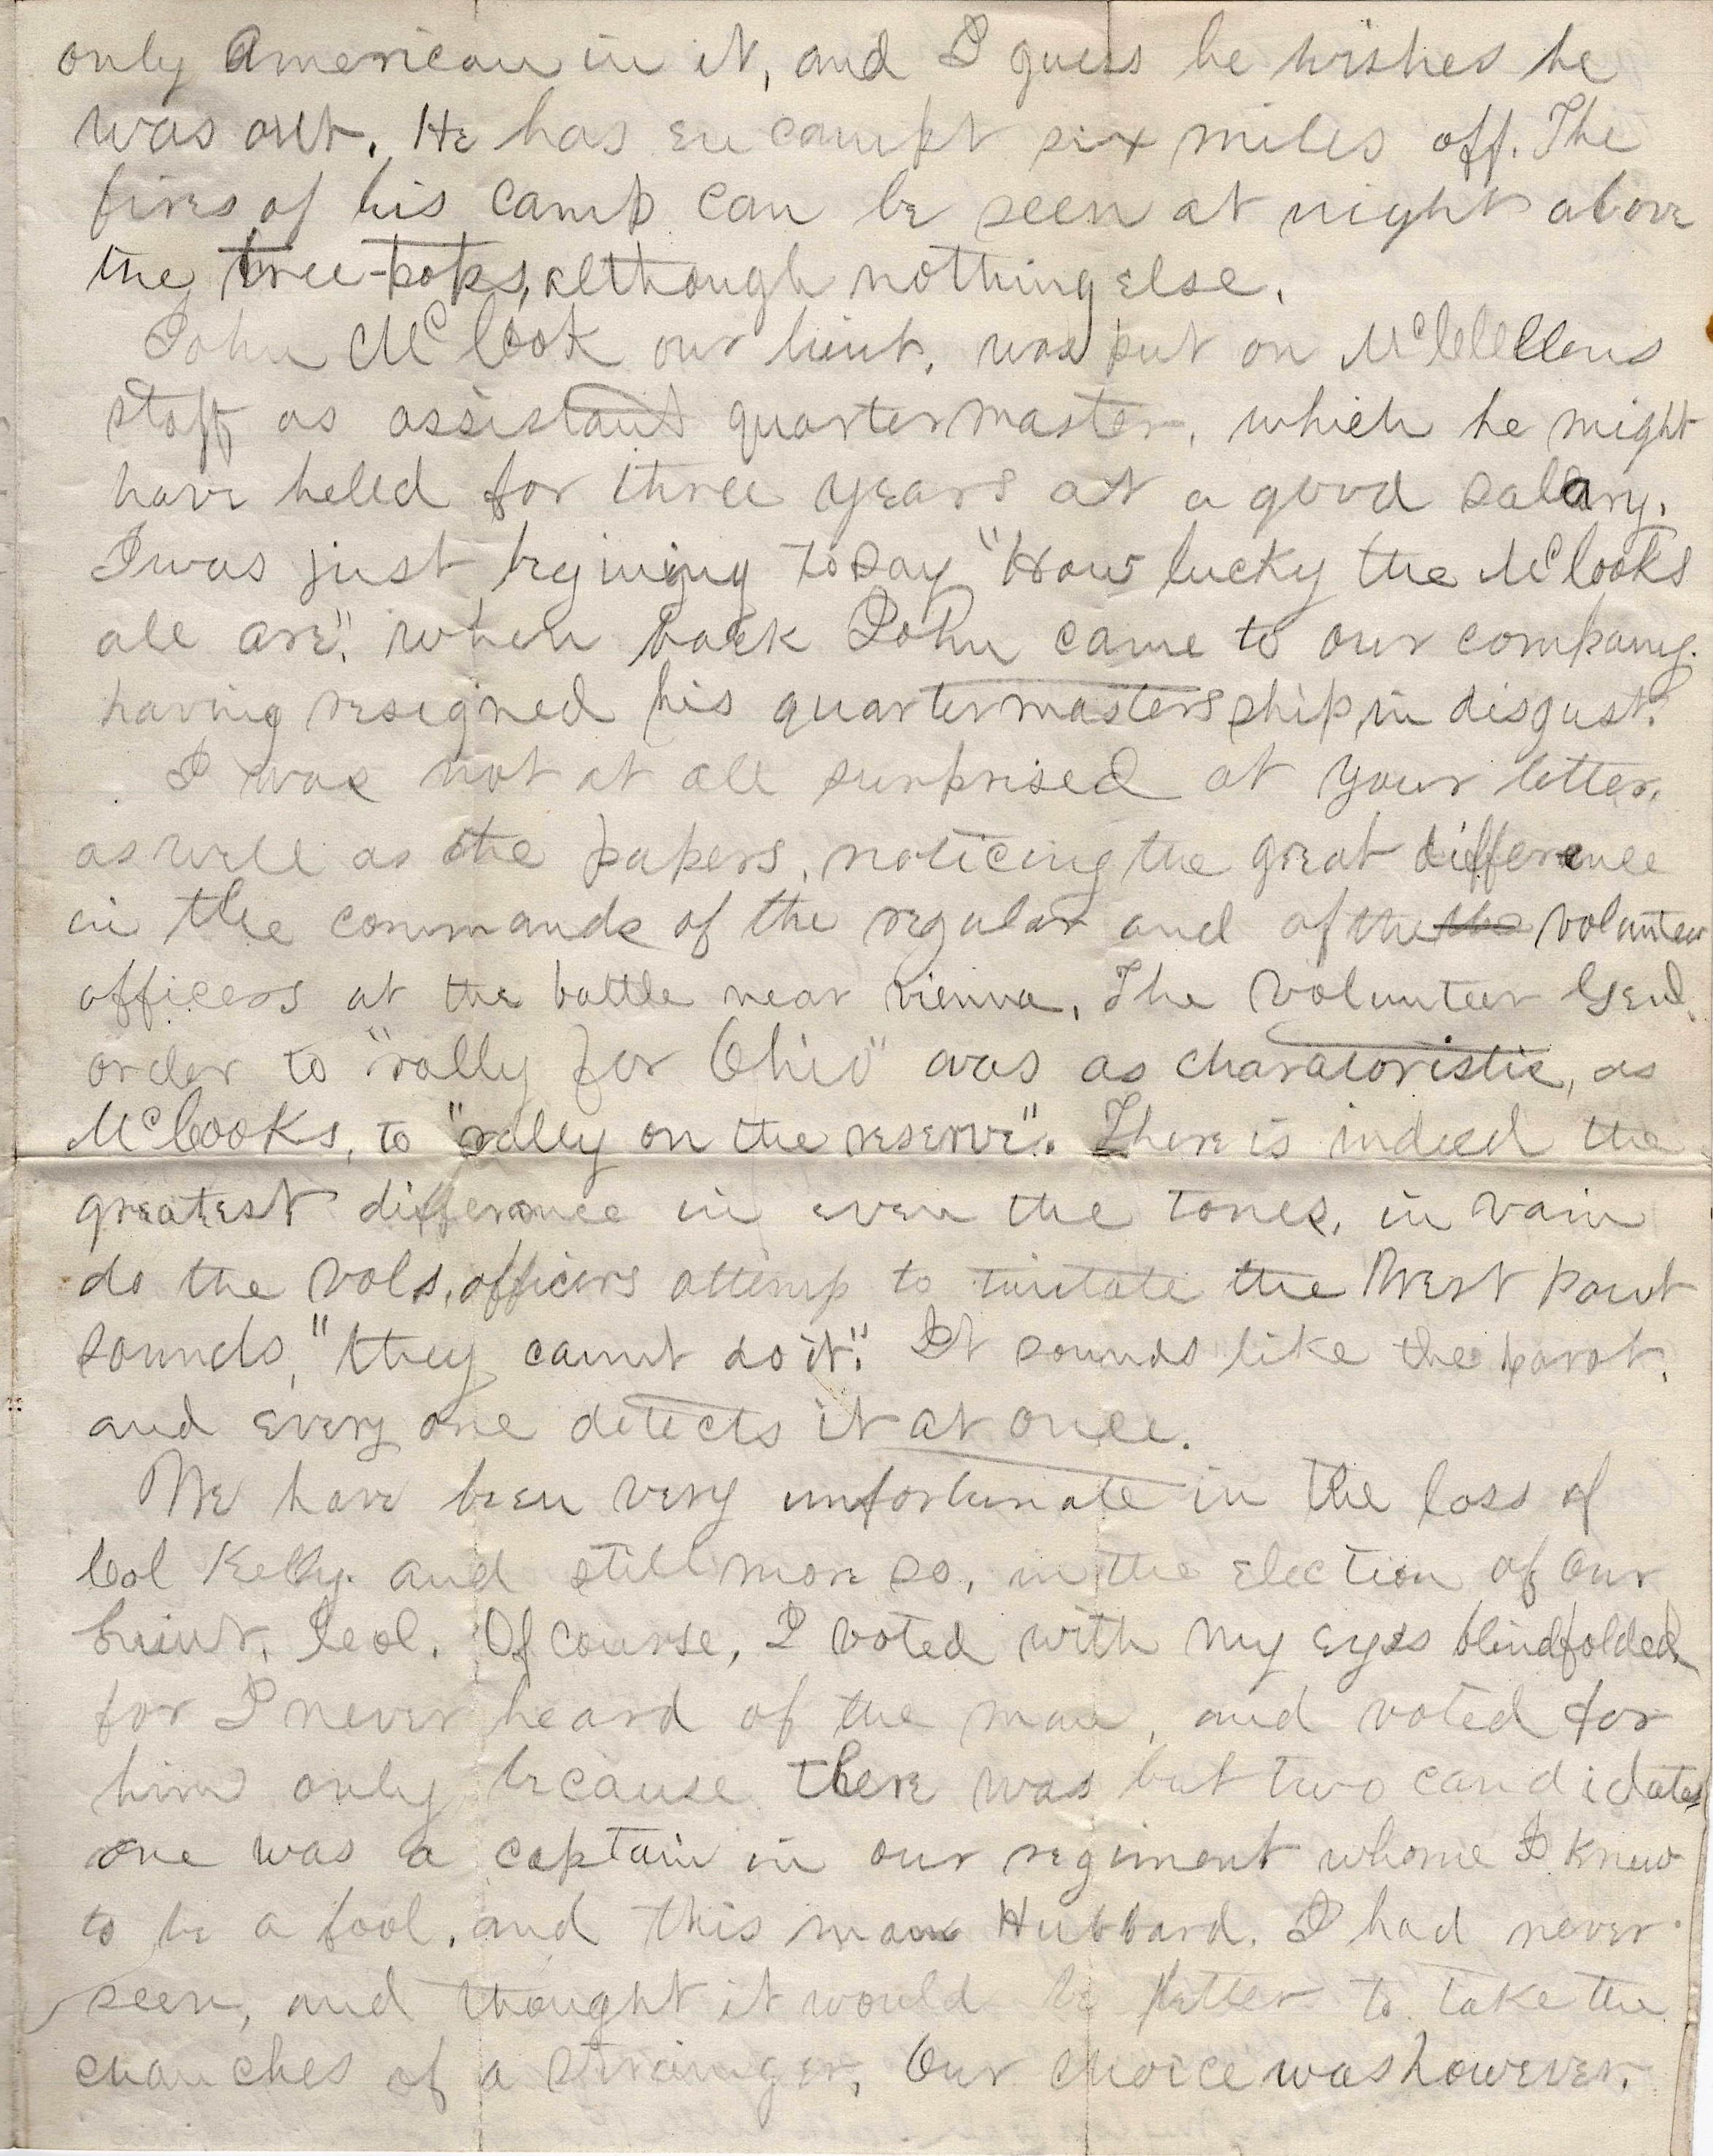 only American in it, and I guess he wishes he
was out. He has encampt six miles off. The
fires of his camp can be seen at night above
the tree-tops, although nothing else.
John McCook our lieut. was put on McClellens
staff as assistant quartermaster, which he might
have helld for three years at a good salary.
I was just begining to say "How lucky the McCooks
all are", when back John came to our company.
having resigned his quartermastersship in disgust.
I was not at all surprised at your letter,
as well as the papers, noticing the great difference
in the commands of the regular and of the the volunteer
officers at the battle near vienna. The Volunteer Genl.
order to "rally for Ohio" was as charatoristic, as
McCooks, to "rally on the reserve". There is indeed the
greatest difference in even the tones, in vain
do the Vols, officers attemp to imitate the West Point
sounds, "they cannt do it". It sounds like the parot,
and every one detects it at once.
We have been very unfortunate in the loss of
Col Kelly. and still more so, in the election of our
Lieut. Col. Of course, I voted with my eyes blindfolded,
for I never heard of the man, and voted for
him only because there was but two candidates
one was a captain in our regiment whome I knew
to be a fool, and this man Hubbard. I had never
seen, and thought it would be better to take the
chanches of a stranger. Our choice was however.